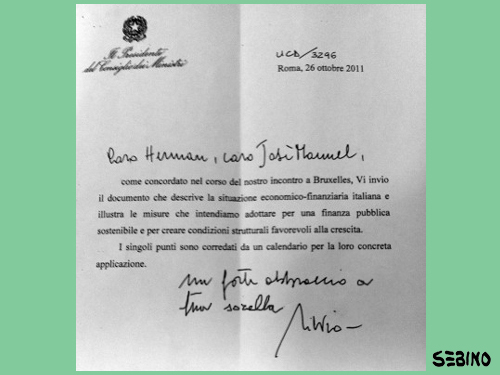 Il Presidente
del Consiglio dei Ministri
UCD/3296
Roma, 26 ottobre 2011
Caro Herman, caro José Manuel,
come concordato nel corso del nostro incontro a Bruxelles, Vi invio
il documento che descrive la situazione economico-finanziaria italiana e
illustra le misure che intendiamo adottare per una finanza pubblica
sostenibile e per creare condizioni strutturali favorevoli alla crescita.
I singoli punti sono corredati da un calendario per la loro concreta
applicazione.
un forte abbraccio a
tua sorella
Silvio
SEBINO